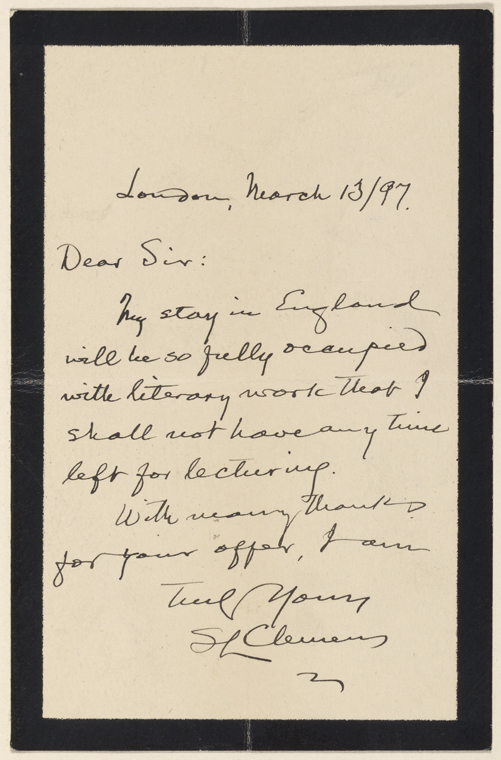 London, March 13/97.
Dear Sir:
My stay in England
will be so fully occupied
with literary work that I
shall not have any time
left for lecturing.
With many thanks
for your offer, I am
Truly Yours
SL Clemens